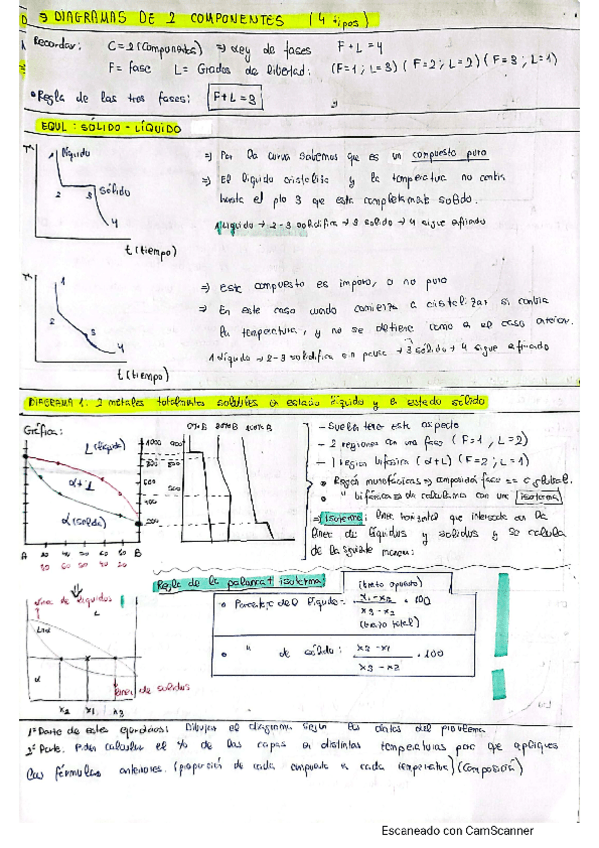 ⇒ DIAGRAMAS DE 2 COMPONENTES (4 tipos)
Recordar: C=2 (Componentes) ⇒ Ley de fases F+L=4
F= fase L= Grados de libertad: (F=1; L=3) (F=2; L=2) (F=3; L=1)
• Regla de las tres fases: F+L=3
EQUL: SÓLIDO-LÍQUIDO
Tª
1 líquido
2 3 sólido
4
t (tiempo)
⇒ Por la curva sabemos que es un compuesto puro
⇒ El líquido cristaliza y la temperatura no
hasta el pto 3 que esta completamente solido.
1 líquido → 2-3 solidifica → 3 solido → 4 sigue enfriando
Tª
1
2
3
4
t (tiempo)
⇒ este compuesto es impuro, o no puro
⇒ En este caso cuando comienza a cristalizar si cambia
la temperatura, y no se detiene como en el caso anterior.
1 líquido → 2-3 solidifica → 3 sólido → 4 sigue enfriando
DIAGRAMA 1: 2 metales totalmente solubles en estado líquido y en estado sólido
Gráfica:
L (líquido)
α+L
α (solido)
A 20 40 60 80 B
1000 900
800 800
600
400
200
0% B 20% B 100% B
- Suele tener este aspecto
- 2 regiones con una fase (F=1, L=2)
- 1 region bifásica (α+L) (F=2; L=1)
• Regiones monofásicas ⇒ composición fase == c global.
• " bifásicas se calcularia con una isoterma
⇒ isoterma: linea horizontal que intersecta en la
linea de liquidus y solidus y se calcula
de la siguiente manera:
Regla de la palanca + isoterma
(brazo opuesto)
• Porcentaje de líquido = x₁-x₂ / x₃-x₂ · 100
(brazo total)
• " de sólido: x₃-x₁ / x₃-x₂ · 100
linea de liquidus
L
L+α
α
linea de solidus
x₂ x₁ x₃
1ª Parte de estos ejercicios: Dibujar el diagrama según los datos del problema
2ª Parte. Piden calcular el % de las fases en distintas temperaturas para que apliques
las fórmulas anteriores. (proporción de cada compuesto a cada temperatura) (Composición)
Escaneado con CamScanner